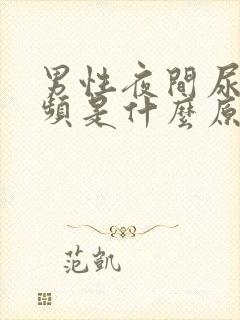 男性夜間尿
頻是什麼原
范凱